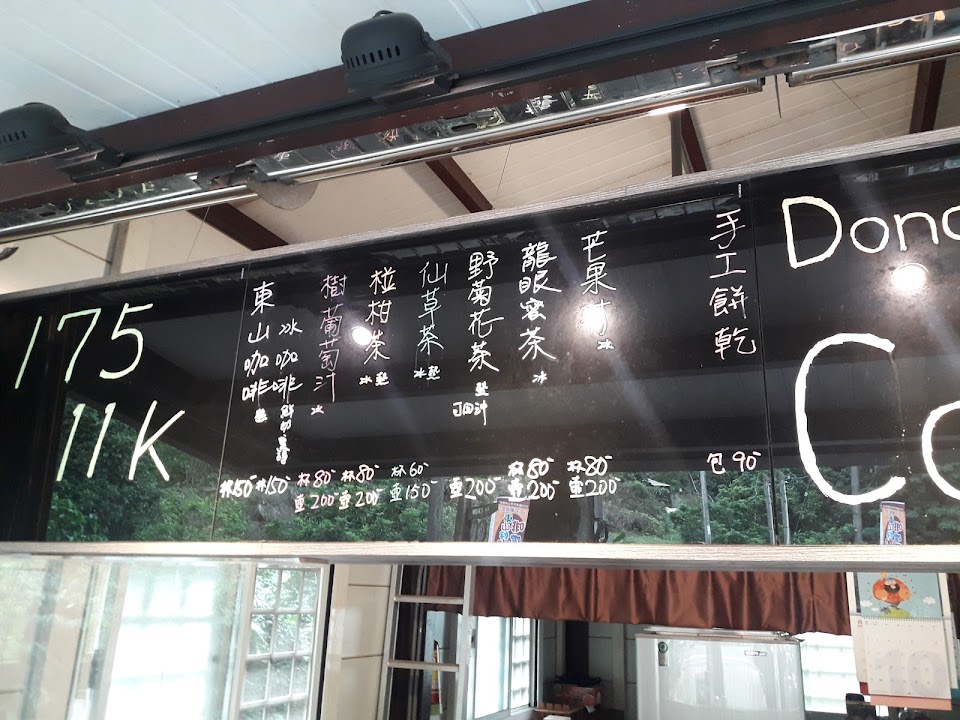 175
11K
東山咖啡 熱
杯150
冰咖啡
杯150
樹葡萄汁 冰
杯80
壺200
椪柑茶 冰熱
杯80
壺200
仙草茶 冰熱
杯60
壺150
野菊花茶 熱
可回沖
壺200
龍眼蜜茶 冰
杯80
壺200
芒果汁 冰
杯80
壺200
手工餅乾
包90
Dong
Co
10